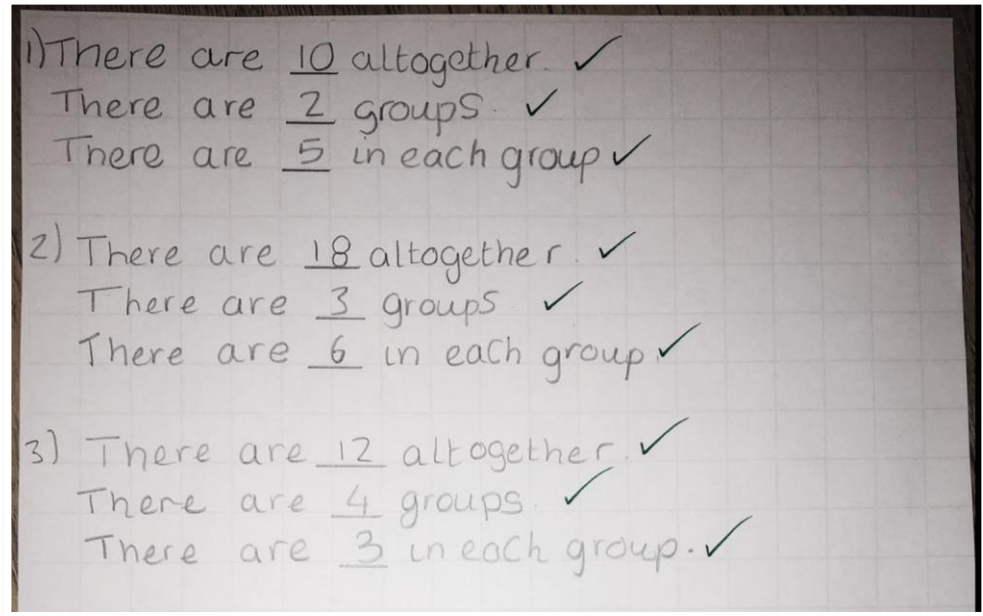 1) There are 10 altogether. ✓
There are 2 groups. ✓
There are 5 in each group ✓
2) There are 18 altogether. ✓
There are 3 groups ✓
There are 6 in each group. ✓
3) There are 12 altogether. ✓
There are 4 groups. ✓
There are 3 in each group. ✓